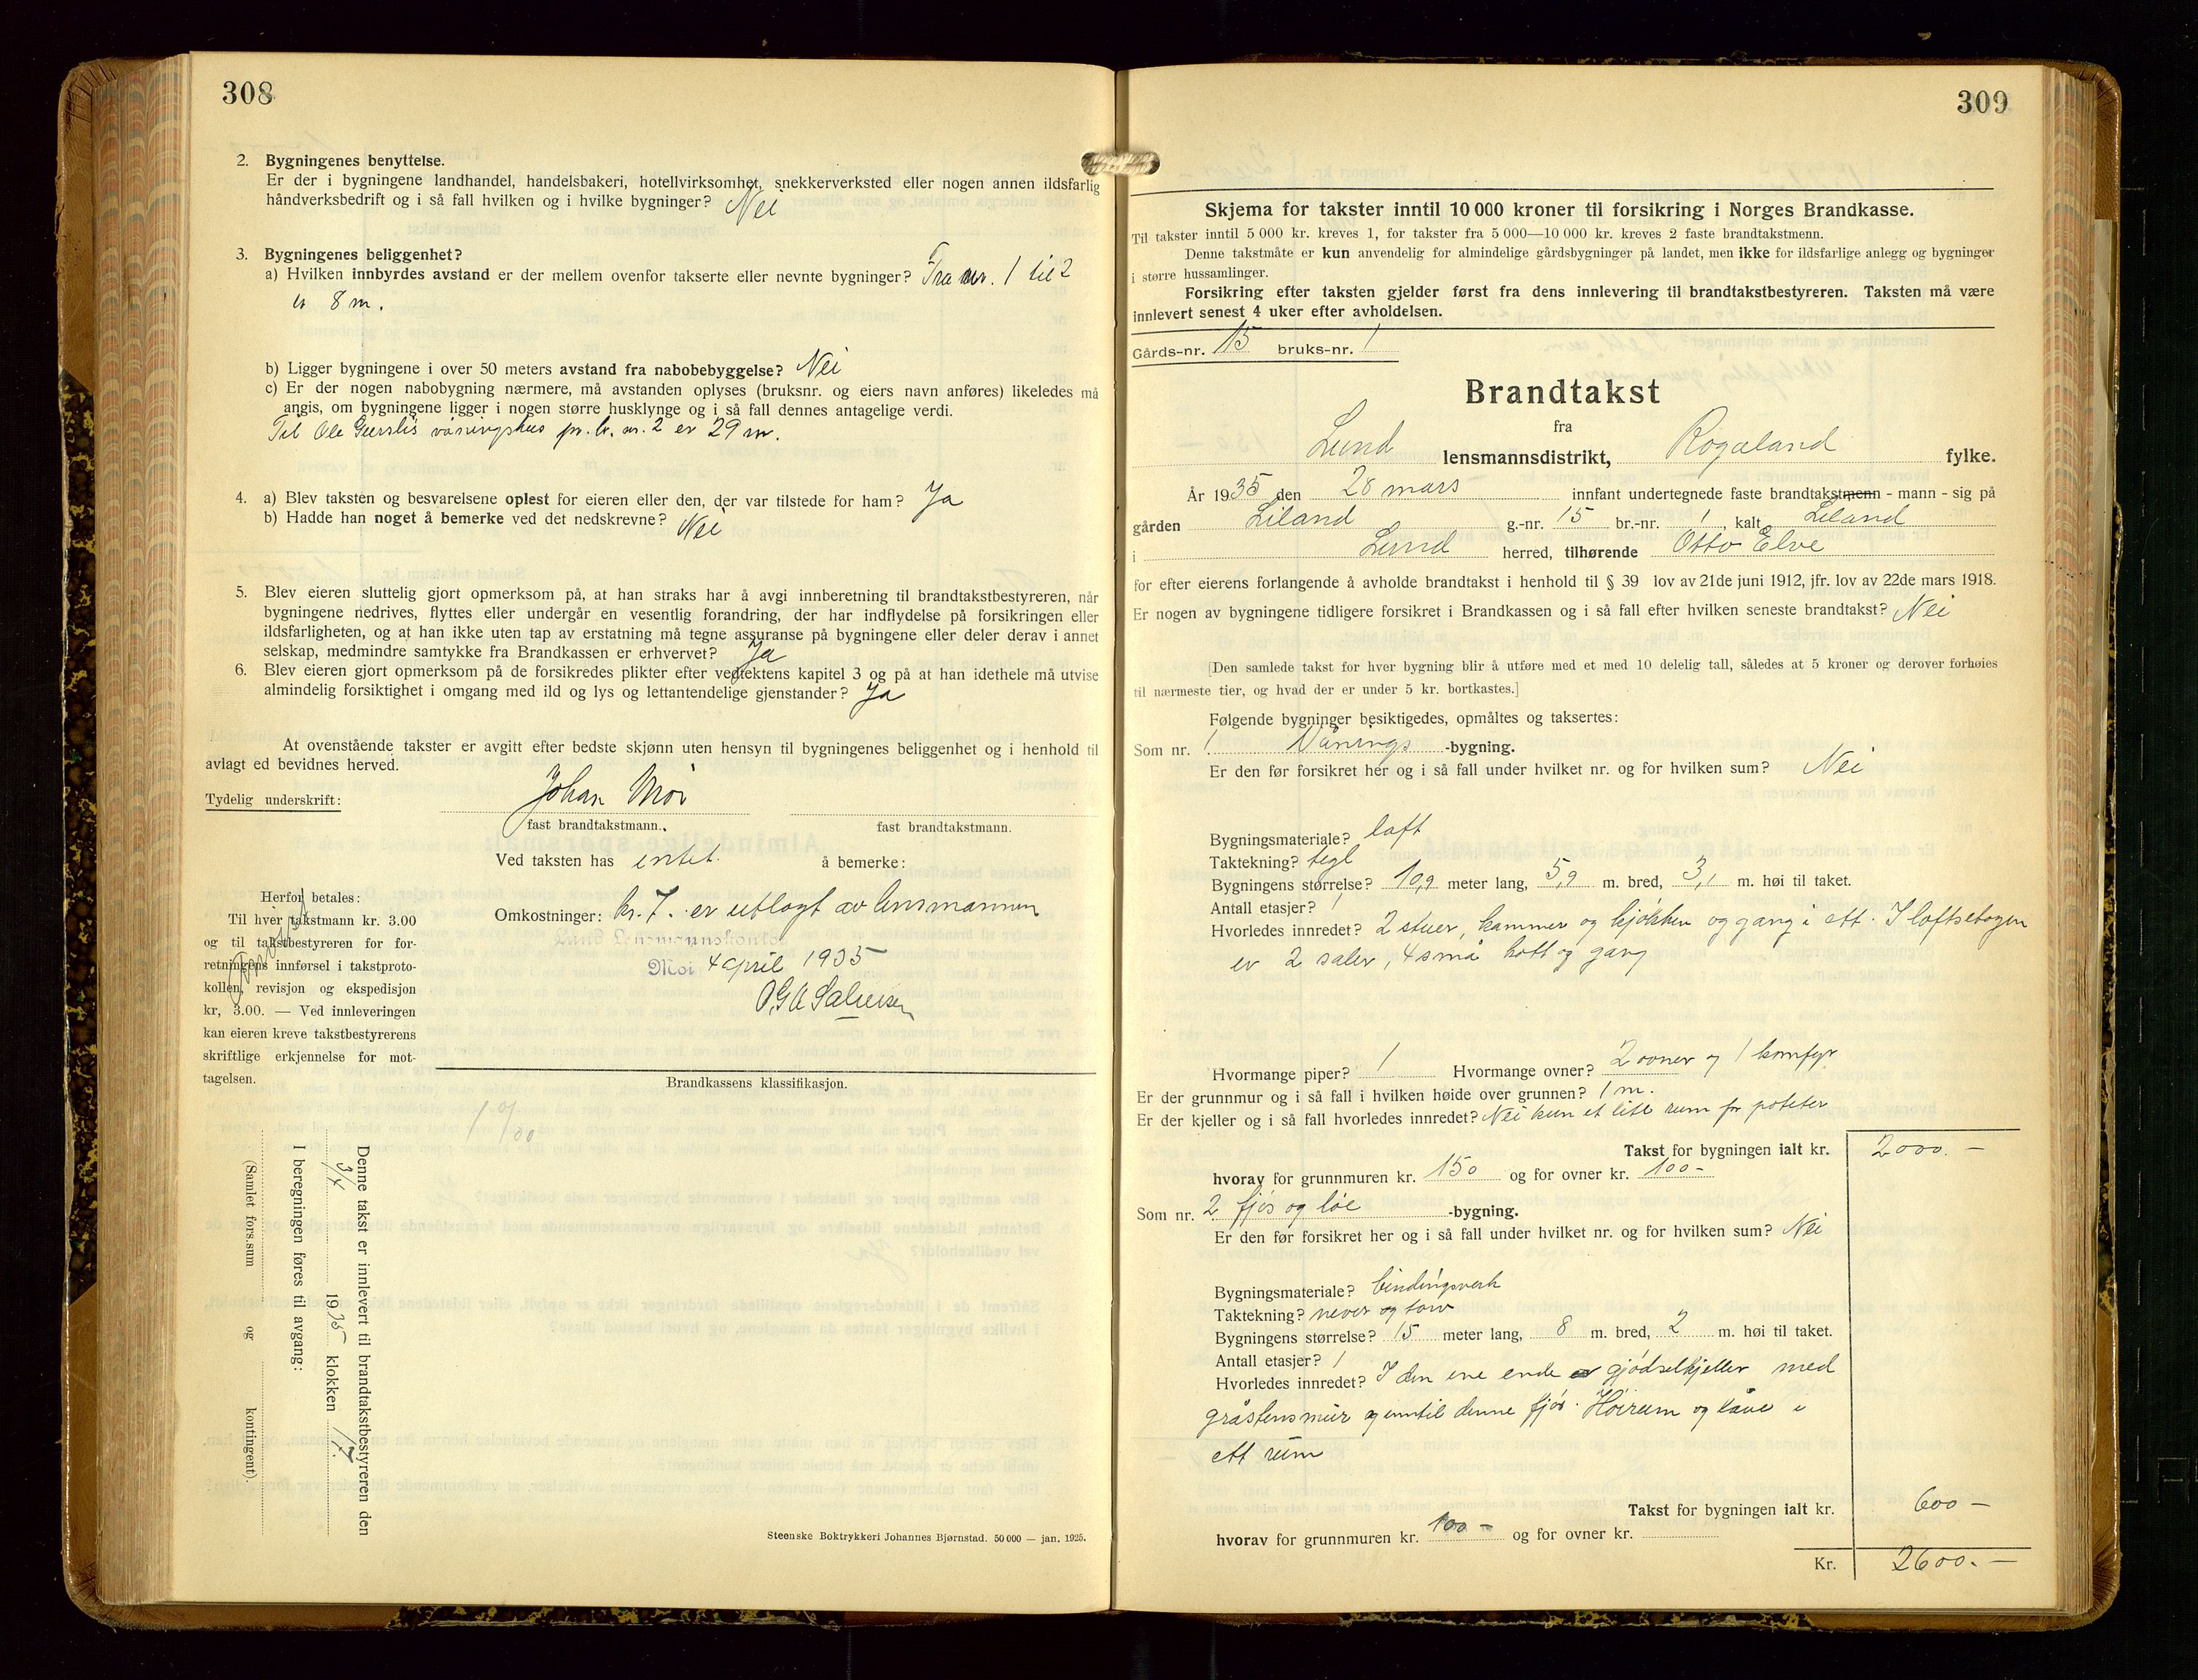 308
2. Bygningenes benyttelse.
Er der i bygningene landhandel, handelsbakeri, hotellvirksomhet, snekkerverksted eller nogen annen ildsfarlig
håndverksbedrift og i så fall hvilken og i hvilke bygninger? Nei
3. Bygningenes beliggenhet?
a) Hvilken innbyrdes avstand er der mellem ovenfor takserte eller nevnte bygninger? Fra nr. 1 til 2
er 8 m.
b) Ligger bygningene i over 50 meters avstand fra nabobebyggelse? Nei
c) Er der nogen nabobygning nærmere, må avstanden oplyses (bruksnr. og eiers navn anføres) likeledes må
angis, om bygningene ligger i nogen større husklynge og i så fall dennes antagelige verdi.
Til Ole våningshus på br. nr. 2 er 29 m.
4. a) Blev taksten og besvarelsene oplest for eieren eller den, der var tilstede for ham? Ja
b) Hadde han noget å bemerke ved det nedskrevne? Nei
5. Blev eieren sluttelig gjort opmerksom på, at han straks har å avgi innberetning til brandtakstbestyreren, når
bygningene nedrives, flyttes eller undergår en vesentlig forandring, der har indflydelse på forsikringen eller
ildsfarligheten, og at han ikke uten tap av erstatning må tegne assuranse på bygningene eller deler derav i annet
selskap, medmindre samtykke fra Brandkassen er erhvervet? Ja
6. Blev eieren gjort opmerksom på de forsikredes plikter efter vedtektens kapitel 3 og på at han idethele må utvise
almindelig forsiktighet i omgang med ild og lys og lettantendelige gjenstander? Ja
At ovenstående takster er avgitt efter bedste skjønn uten hensyn til bygningenes beliggenhet og i henhold til
avlagt ed bevidnes herved.
Tydelig underskrift: Johan Moi
fast brandtakstmann. fast brandtakstmann.
Ved taksten has intet å bemerke:
Omkostninger: kr. 7. er utlagt av lensmannen
Lund Lensmannskontor
Moi 4 april 1935
Herfor betales:
Til hver takstmann kr. 3.00
og til takstbestyreren for for-
retningens innførsel i takstproto-
kollen, revisjon og ekspedisjon
kr, 3.00. — Ved innleveringen
kan eieren kreve takstbestyrerens
skriftlige erkjennelse for mot-
tagelsen.
Brandkassens klassifikasjon.
Denne takst er innlevert til brandtakstbestyreren den
3/4 1935 klokken 17.
I beregningen føres til avgang:
(Samlet fors.sum og kontingent).
Steenske Boktrykkeri Johannes Bjørnstad. 50 000 — jan. 1925.
309
Skjema for takster inntil 10 000 kroner til forsikring i Norges Brandkasse.
Til takster inntil 5 000 kr. kreves 1, for takster fra 5 000—10 000 kr. kreves 2 faste brandtakstmenn.
Denne takstmåte er kun anvendelig for almindelige gårdsbygninger på landet, men ikke for ildsfarlige anlegg og bygninger
i større hussamlinger.
Forsikring efter taksten gjelder først fra dens innlevering til brandtakstbestyreren. Taksten må være
innlevert senest 4 uker efter avholdelsen.
Gårds-nr. 15 bruks-nr. 1
Brandtakst
fra
Lund lensmannsdistrikt, Rogaland fylke.
År 1935 den 28 mars innfant undertegnede faste brandtakstmenn - mann - sig på
gården Liland g.-nr. 15 br.-nr. 1, kalt Liland
i Lund herred, tilhørende Otto Elve
for efter eierens forlangende å avholde brandtakst i henhold til § 39 lov av 21de juni 1912, jfr. lov av 22de mars 1918.
Er nogen av bygningene tidligere forsikret i Brandkassen og i så fall efter hvilken seneste brandtakst? Nei
[Den samlede takst for hver bygning blir å utføre med et med 10 delelig tall, således at 5 kroner og derover forhøies
til nærmeste tier, og hvad der er under 5 kr. bortkastes.]
Følgende bygninger besiktigedes, opmåltes og taksertes:
Som nr. 1 Vånings-bygning.
Er den før forsikret her og i så fall under hvilket nr. og for hvilken sum? Nei
Bygningsmateriale? laft
Taktekning? tegl
Bygningens størrelse? 10,9 meter lang, 5,9 m. bred, 3,1 m. høi til taket.
Antall etasjer? 1
Hvorledes innredet? 2 stuer, kammer og kjøkken og gang i ett. I loftsetagen
er 2 saler, 4 små kott og gang
Hvormange piper? 1 Hvormange ovner? 2 ovner og 1 komfyr
Er der grunnmur og i så fall i hvilken høide over grunnen? 1 m.
Er der kjeller og i så fall hvorledes innredet? Nei kun et lite rum for poteter
Takst for bygningen ialt kr. 2000.-
hvorav for grunnmuren kr. 150 og for ovner kr. 100-
Som nr. 2 fjøs og løe-bygning.
Er den før forsikret her og i så fall under hvilket nr. og for hvilken sum? Nei
Bygningsmateriale? bindingsverk
Taktekning? never og torv
Bygningens størrelse? 15 meter lang, 8 m. bred, 2 m. høi til taket.
Antall etasjer? 1
Hvorledes innredet? I den ene ende er gjødselkjeller med
gråstensmur og inntil denne fjøs. Høirum og låve i
ett rum
Takst for bygningen ialt kr. 600-
hvorav for grunnmuren kr. 100- og for ovner kr.
Kr. 2600.-